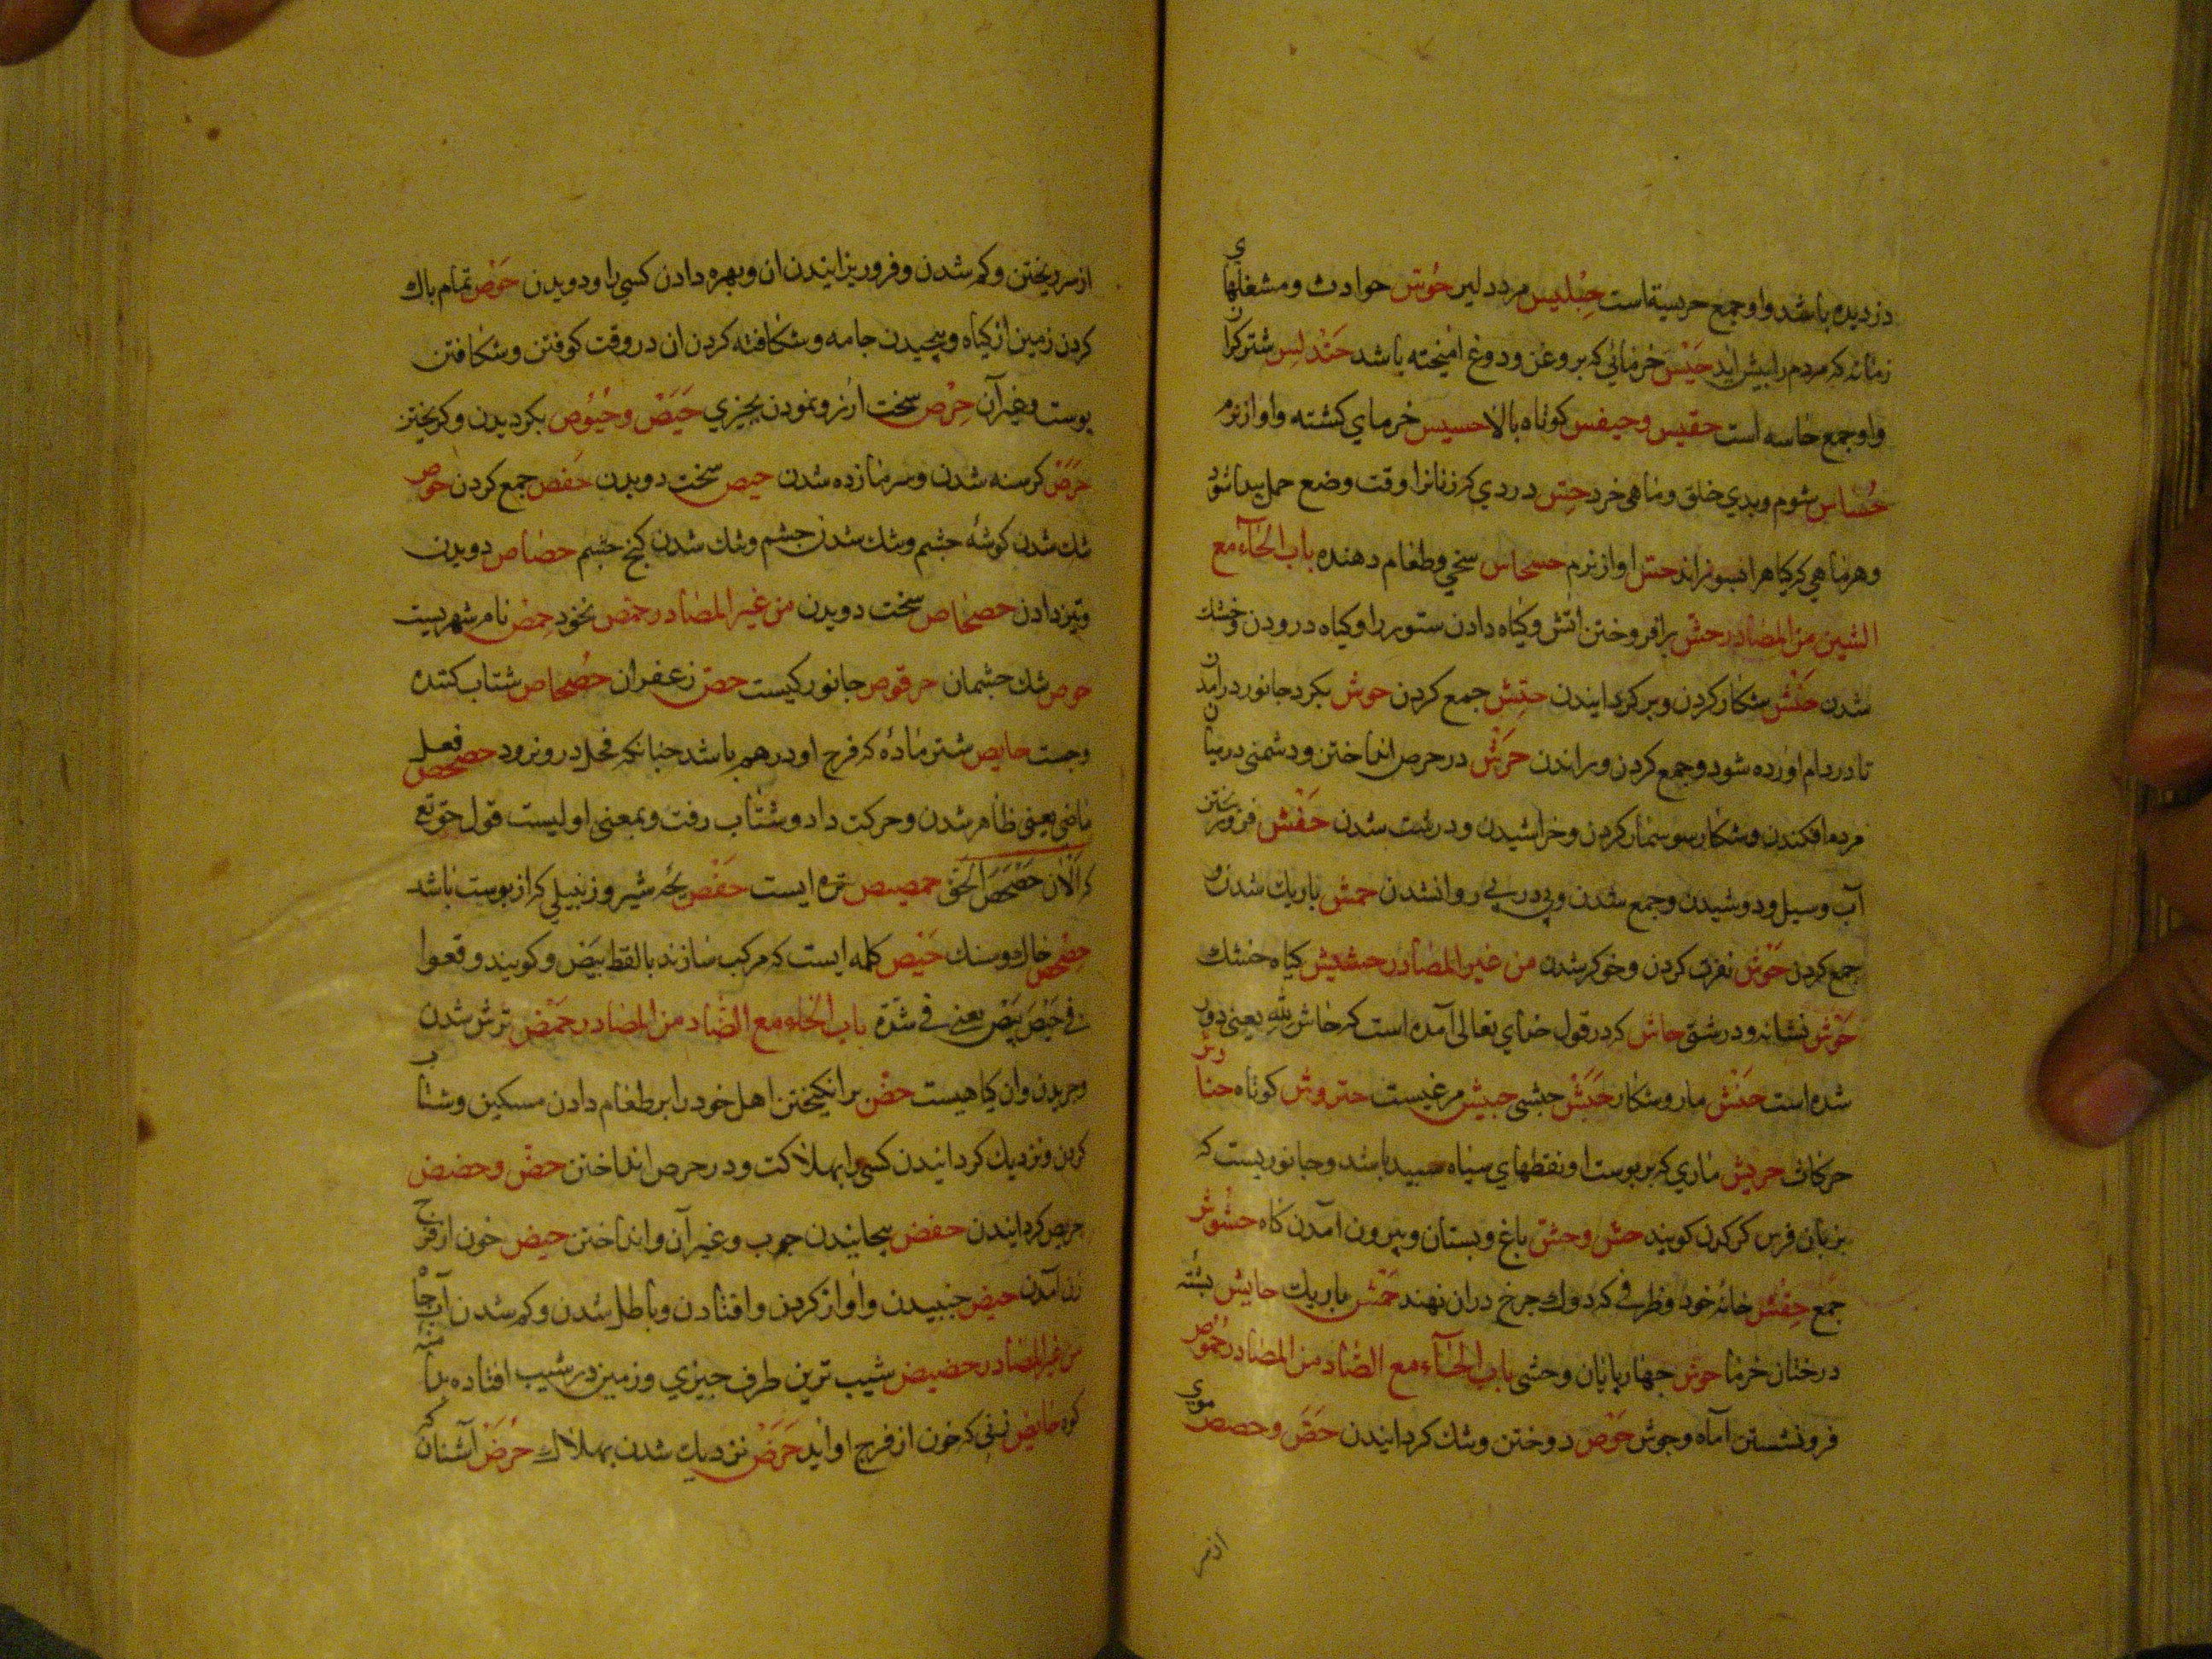 دزدیده باشد واو جمع حریسة است حِبْلبیس مرد دلیر حُوْس حوادث ومشغلهای
زمانه که مردم را پیش اید حَیْس خرمائی که بروغن ودوغ امیخته باشد حَنْدلِس شتر کران
واو جمع حاسه است حقیس وحیفس کوتاه بالا حسیس خرمای کشته واواز نرم
حُساس شوم وبدی خلق وماهی خرد حِسّ دردی که زنانرا وقت وضع حمل پیدا شود
وهر ماهی که کیاهرا بسوزاند حسّ اواز نرم حسحاس سخی وطعام دهنده باب الحآء مع
الشین من المصادر حشّ برافروختن اتش وکیاه دادن ستور را وکیاه درودن وخشك
شدن حَنْش شکار کردن وبرکردایندن حتش جمع کردن حوش بکرد جانور درامدن
تا در دام اورده شود وجمع کردن وبراندن حَرْش در حرص انداختن ودشمنی در میان
مردم افکندن وشکار سوسمار کردن وخراشیدن ودرشت شدن حَفْش فروریختن
آب وسیل ودوشیدن وجمع شدن وپی در پی روانشدن حمش باریك شدن و
جمع کردن حَوْش نفرت کردن وخوکر شدن من غیر المصادر حشیش کیاه خشك
حَرْش نشانه ودرشتی حاش که در قول خدای تعالی آمده است که حاش للّٰه یعنی دور
شده است حَنَش مار وشکار حَبَش حبشی حبیش مرغیست حتروش کوتاه حناش
حرکات حریش ماری که بر پوست او نقطهای سیاه سپید باشد وجانوریست که
بزبان فرس کرکدن کویند حشّ وحشّ باغ وبستان وبیرون آمدن کاه حشوش
جمع حِفْش خانۀ خرد وظرفی که دوك چرخ دران نهند حَمْش باریك حایش پشته
درختان خرما حوش جهارپایان وحشی باب الحآء مع الصّاد من المصادر حُموُص
فرونشستن آماه وجوش حَوْص دوختن وتنك کردایندن حَصّ وحصص موی
از سر
از سر ریختن وکم شدن وفروریزایندن ان وبهره دادن کسی را ودویدن حَوْص تمام باك
کردن زمین از کیاه وپیچیدن جامه وشکافته کردن ان در وقت کوفتن وشکافتن
پوست وغیر آن حِرْص سخت ارزو نمودن بچیزی حَیَصْ وحُیُوْص بکردیدن وکریختن
حَرَصْ کرسنه شدن وسرمازده شدن حیص سخت دویدن حَفص جمع کردن حوص
تنك شدن کوشۀ چشم وتنك شدن چشم وتنك شدن کنج چشم حصاص دویدن
وتیز دادن حصحاص سخت دویدن من غیر المصادر حمّص نخود حِمْص نام شهریست
حوص تنك چشمان حرقوص جانورکیست حصّ زعفران حُصْحاص شتاب کننده
وچست حایص شتر مادۀ که فرج او درهم باشد چنانکه فحل درو نرود حصحص فعل
ماضی یعنی ظاهر شدن وحرکت داد وشتاب رفت وبمعنی اولیست قول حق تع
که اَلْآن حَصْحَصَ الْحَقّ حمصیص تره ایست حَفْص بچۀ شیر وزنبیلی که از پوست باشد
حِصْحِص خاك وسنك حَیْص کلمه ایست که مرکب سازند بالفظ بَیْض وکویند وقعوا
فی حَیْصَ بَیْصَ یعنی فی شدّة باب الحآء مع الضّاد من المصادر حَمْض ترش شدن
وچریدن وان کیاهیست حضّ برانکیختن اهل خود را بر طعام دادن مسکین وشتاب
کردن ونزدیك کردانیدن کسی را بهلاکت ودر حرص انداختن حضّ وحضض
حریص کردایندن حفض پیچانیدن چوب وغیر آن وانداختن حیض خون از فرج
زن آمدن حبض جنبیدن واواز کردن وافتادن وباطل شدن وکم شدن آب چاه
من غیر المصادر حضیض شیب ترین طرف چیزی وزمین در شیب افتاده بدامنۀ
کوه حایض زنی که خون از فرج او اید حَرَضْ نزدیك شدن بهلاك حُرْض آشنان که